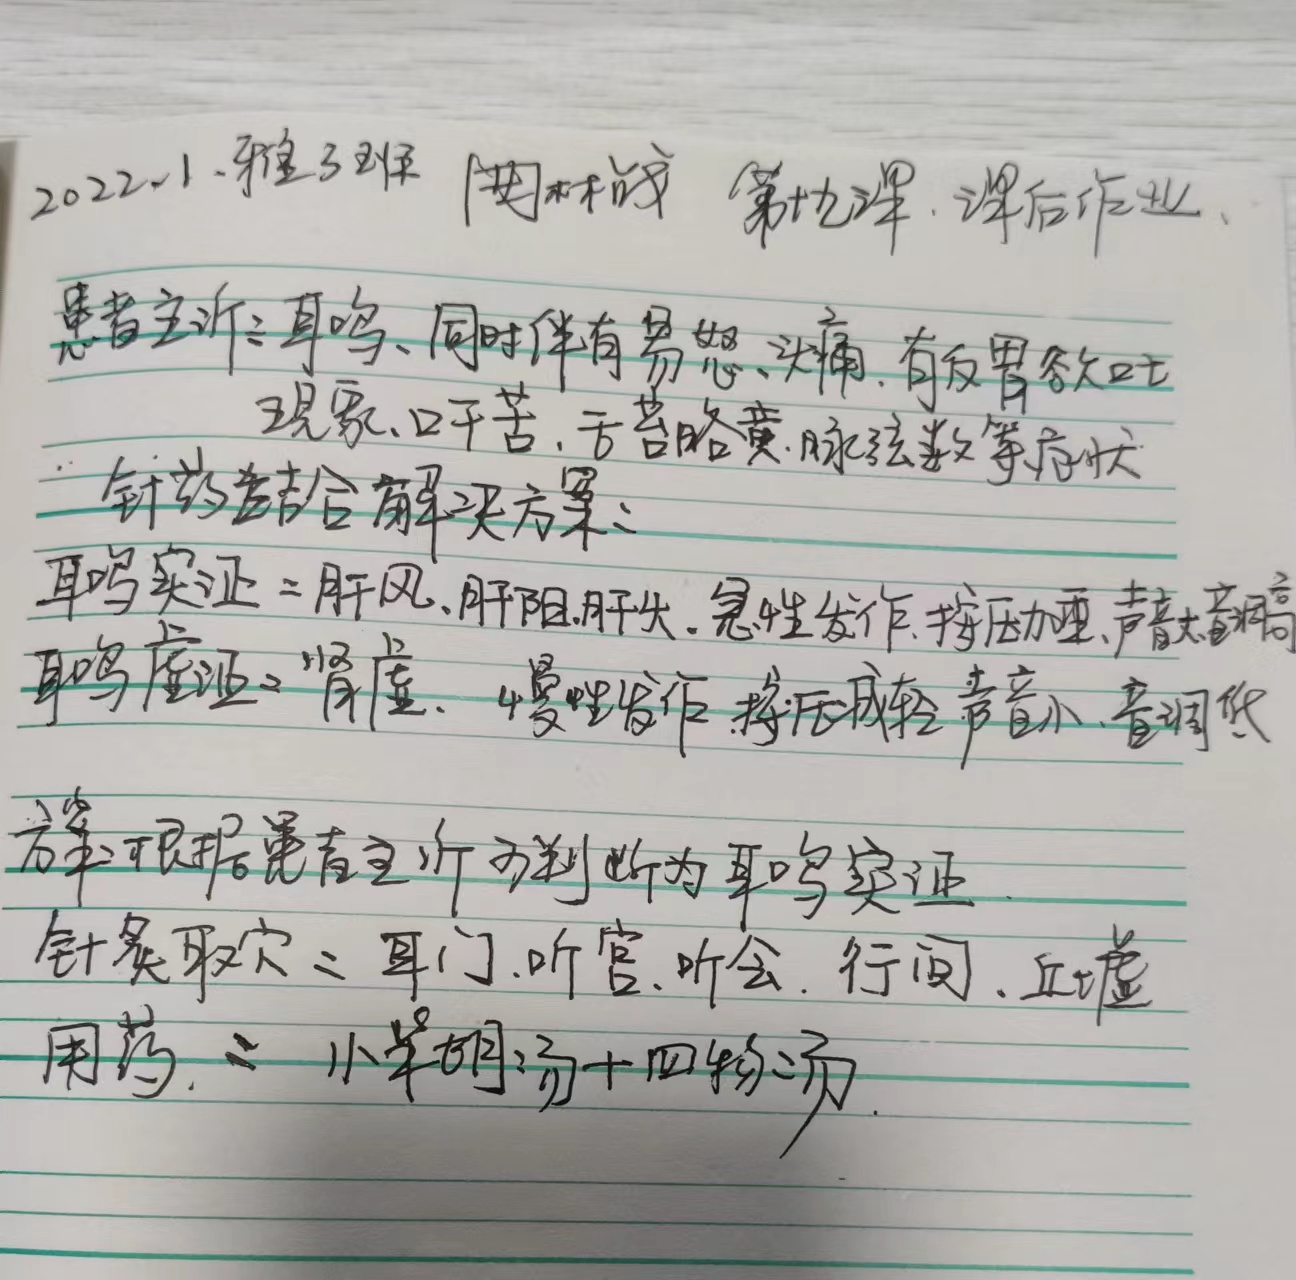 2022.1.雅3班 第十九课.课后作业、
患者主诉:耳鸣、同时伴有易怒、头痛、有反胃欲吐
现象、口干苦、舌苔略黄、脉弦数等症状
针药结合解决方案:
耳鸣实证:肝风、肝阳、肝火、急性发作、按压加重、声音大、音调高
耳鸣虚证:肾虚、慢性发作、按压减轻、声音小、音调低
方案:根据患者主诉可判断为耳鸣实证.
针灸取穴:耳门、听宫、听会、行间、丘墟
用药:小柴胡汤+四物汤.